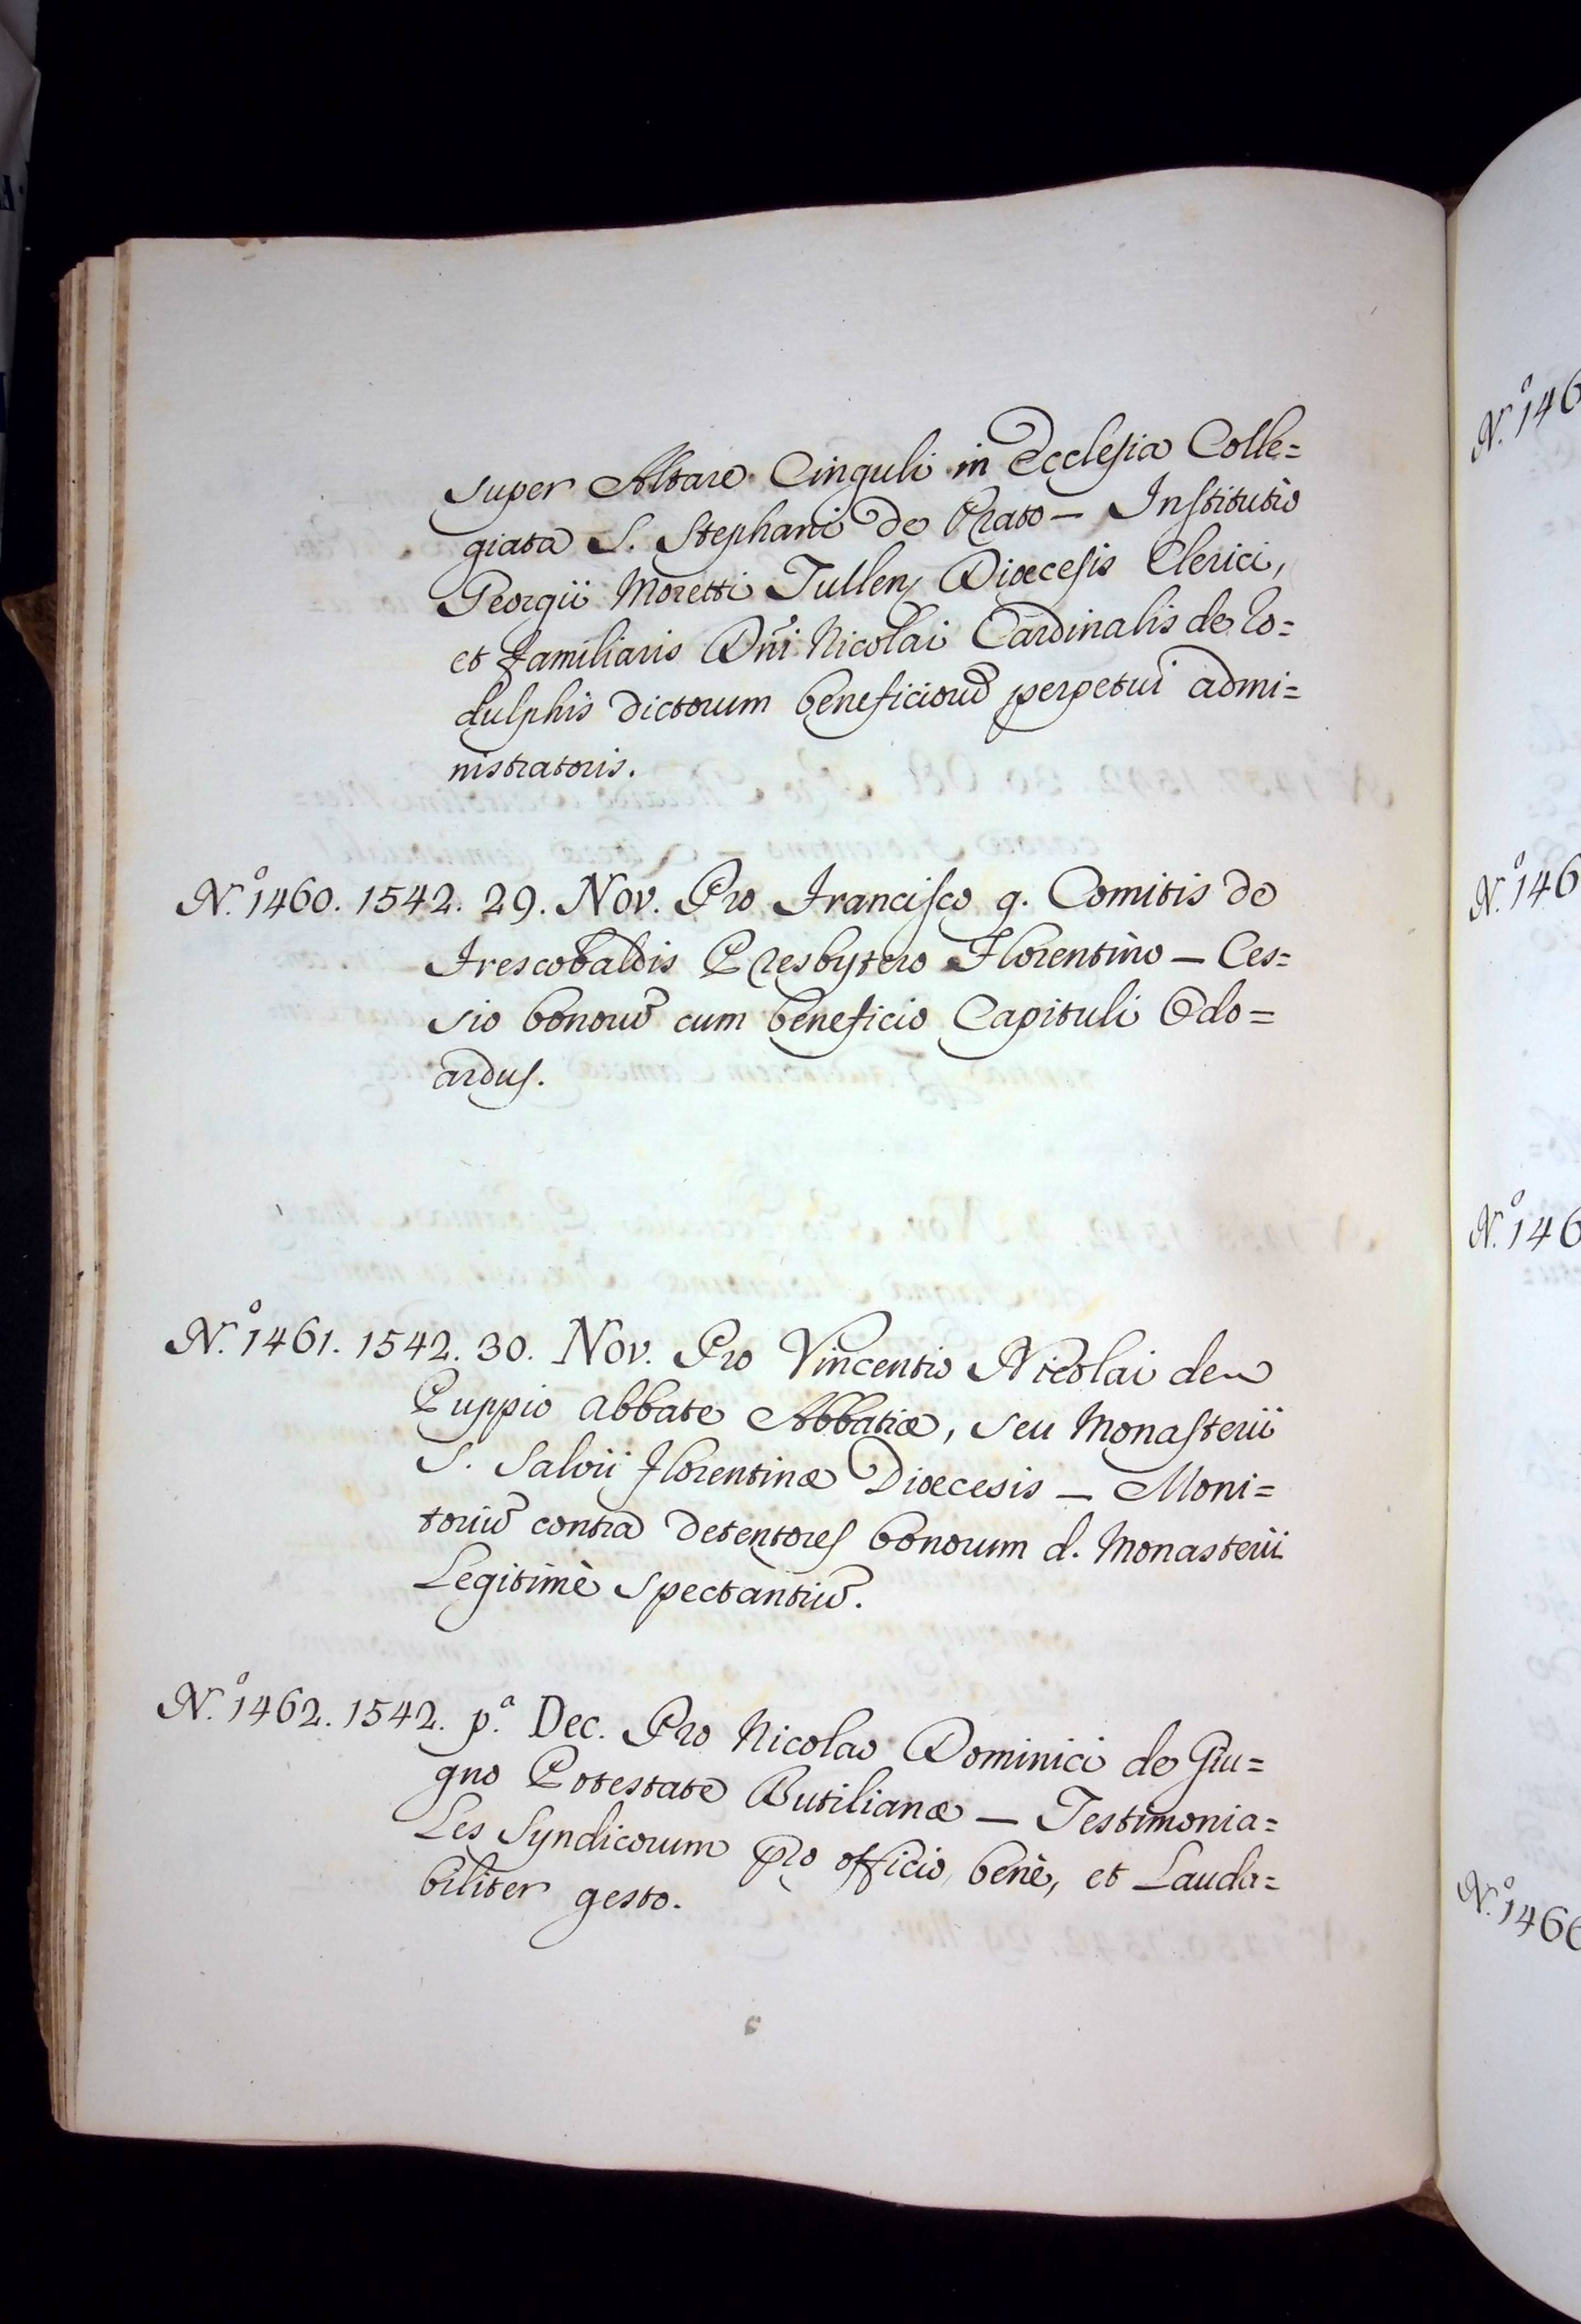 super Altare Cinguli in Ecclesia Colle=
giata S. Stephani de Prato — Institutio
Georgii Moretti Tullen, Diœcesis Clerici,
et familiaris Dñi Nicolai Cardinalis de Ro=
dulphis dictorum beneficioru͂ perpetui admi=
nistratoris.
N.º 1460. 1542. 29. Nov. Pro Francisco q. Comitis de
Frescobaldis Presbytero Florentino — Ces=
sio bonoru͂ cum beneficio Capituli Odo=
ardus.
N.º 1461. 1542. 30. Nov. Pro Vincentio Nicolai de
Puppio Abbate Abbatiæ, seu Monasterii
S. Salvii Florentinæ Diœcesis — Moni=
toriu͂ contra detentores bonorum d. Monasterii
Legitimè spectantiu͂.
N.º 1462. 1542. p.ª Dec. Pro Nicolao Dominici de Giu=
gno Potestate Butilianæ — Testimonia=
Les Syndicorum pro officio benè, et Lauda=
biliter gesto.
N.º 146
N.º 146
N.º 146
N.º 1466